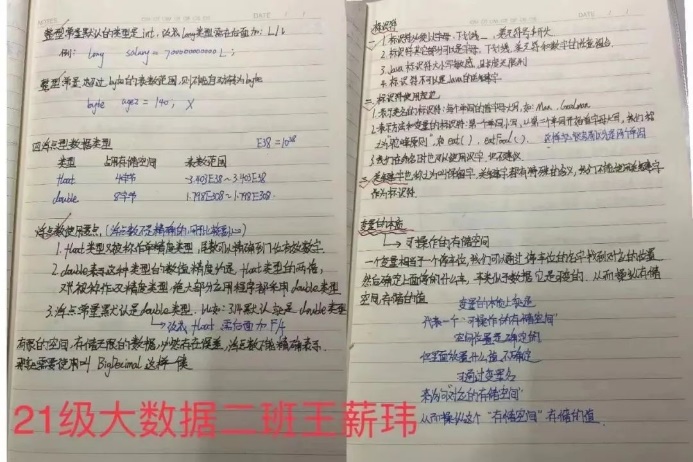 整型常量默认的类型是int, 改成Long类型需在后面加: L/l
例: long salary = 7000000000 L;
整型常量没超过byte的表数范围,则
byte age2 = 140; X
四 浮点型数据类型 E38 = 10³⁸
类型 占用存储空间 表数范围
float 4字节 -3.403E38~3.403E38
double 8字节 -1.798E308~1.798E308
浮点数使用要点: (浮点数不是精确的,
1. float类型又被称作单精度类型,尾数可以精确到7位有效数字
2. double表示这种类型的数值精度约是 float类型的两倍,
又被称作双精度类型,绝大部分应用程序都采用double类型
3. 浮点常量默认是double类型. 比如: 3.14默认就是double类型
→ 改成float 需后面加 F/f
有限的空间,存储无限的数据,必然存在误差,浮点数不能精确表示
需要使用叫 BigDecimal 这样一个类
21级大数据二班王薪玮
标识符
1. 标识符必须以字母、下划线_、美元符号$开头
2. 标识符其它部分可以是字母、下划线、美元符和数字的任意组合
3. Java标识符大小写敏感,且长度无限制
4. 标识符不可以是Java的关键字
二、标识符使用规范
1. 表示类名的标识符: 每个单词的首字母大写, 如: Man, GoodMan
2. 表示方法和变量的标识符: 第一个单词小写, 从第二个单词开始首字母大写, 我们称
之为“驼峰原则”, 如 eat(), eatFood().
3. 我们在命名时也可以使用汉字, 但不建议
三、关键字也称之为叫保留字, 关键字都有特殊的含义, 我们不能使用关键字
作为标识符.
变量的本质
→ 可操作的存储空间
一个变量相当于一个停车位, 我们可以通过停车位的名字找到对应的位置
然后确定上面停的什么车, 车类似于数据 它是可变的. 从而操纵存储
空间存储的值
变量的本质上就是
代表一个“可操作的存储空间”
空间位置是确定的
但里面放置什么值不确定
可通过变量名
来访问“对应的存储空间”
从而操纵这个“存储空间”存储的值.